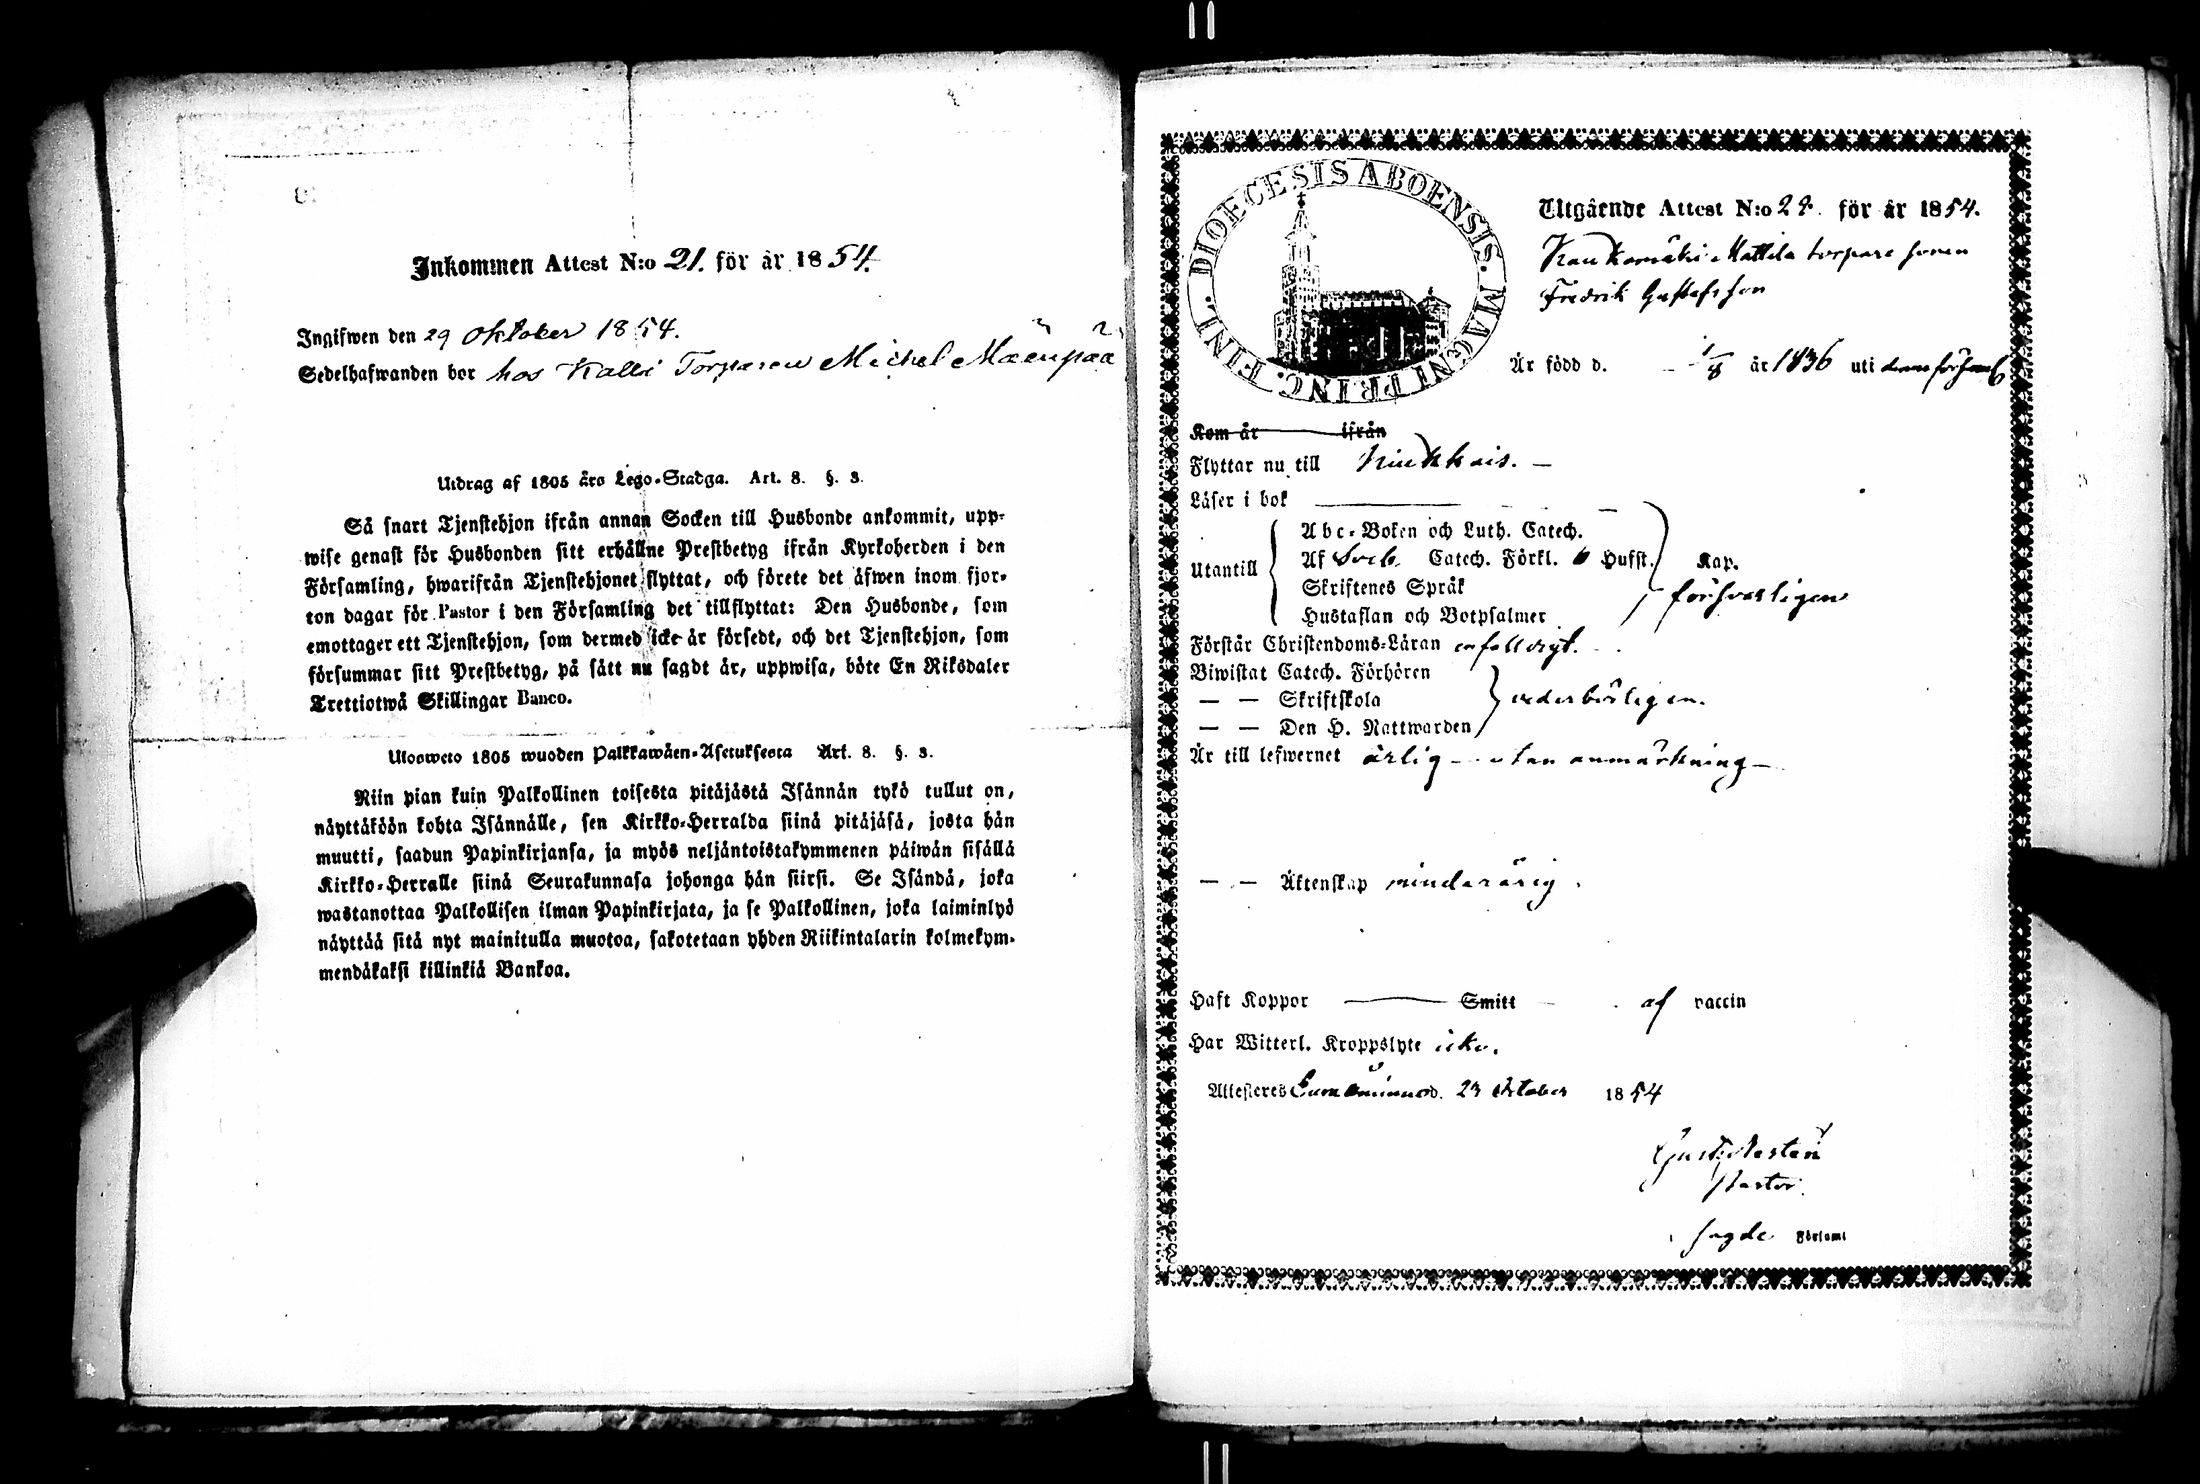 Inkommen Attest N:o 21. för år 1854.
Ingifwen den 29 Oktober 1854.
Sedelhafwanden bor hos Kalli Torparen Michel Mäenpää
Utdrag af 1805 års Lego-Stadga. Art. 8. §. 3.
Så snart Tjenstehjon ifrån annan Socken till Husbonde ankommit, upp-
wise genast för Husbonden sitt erhållne Prestbetyg ifrån Kyrkoherden i den
Församling, hwarifrån Tjenstehjonet flyttat, och förete det äfwen inom fjor-
ton dagar för Pastor i den Församling det tillflyttat: Den Husbonde, som
emottager ett Tjenstehjon, som dermed icke är försedt, och det Tjenstehjon, som
försummar sitt Prestbetyg, på sätt nu sagdt är, uppwisa, böte En Riksdaler
Trettiotwå Skillingar Banco.
Ulosweto 1805 wuoden Palkkawäen-Asetuksesta Art. 8. §. 3.
Niin pian kuin Palkollinen toisesta pitäjästä Isännän tykö tullut on,
näyttäköön kohta Isännälle, sen Kirkko-Herralda siinä pitäjäsä, josta hän
muutti, saadun Papinkirjansa, ja myös neljäntoistakymmenen päiwän sisällä
Kirkko-Herralle siinä Seurakunnasa johonga hän siirsi. Se Isändä, joka
wastanottaa Palkollisen ilman Papinkirjata, ja se Palkollinen, joka laiminlyö
näyttää sitä nyt mainitulla muotoa, sakotetaan yhden Riikintalarin kolmekym-
mendäkaksi killinkiä Bankoa.
DIOECESIS ABOENSIS. MAGNI PRINC. FINL.
Utgående Attest N:o 29. för år 1854.
Mattila torpare sonen
Fredrik Gustafsson
Är född d. 1/8 år 1836 uti
Kom år ifrån
Flyttar nu till Kiukkais.
Läser i bok
Utantill
Abc-Boken och Luth. Catech.
Af Sveb. Catech. Förkl. 6 Hufst. Kap.
Skriftenes Språk
försvarligen
Hustaflan och Botpsalmer
Förstår Christendoms-Läran enfalldigt.
Biwistat Catech. Förhören
— — Skriftskola vederbörligen.
— — Den H. Nattwarden
Är till lefwernet ärlig utan anmärkning
— — Äktenskap minderårig.
Haft Koppor Smitt af vaccin
Har Witterl. Kroppslyte icke.
Attesteras Euraåminne d. 23 Oktober 1854
Pastor
sagde Församl